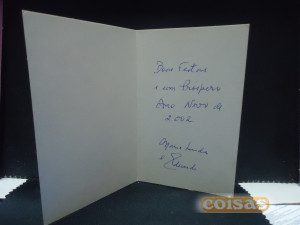 Boas Festas
e um Prospero
Ano Novo de
2002
e
coisas